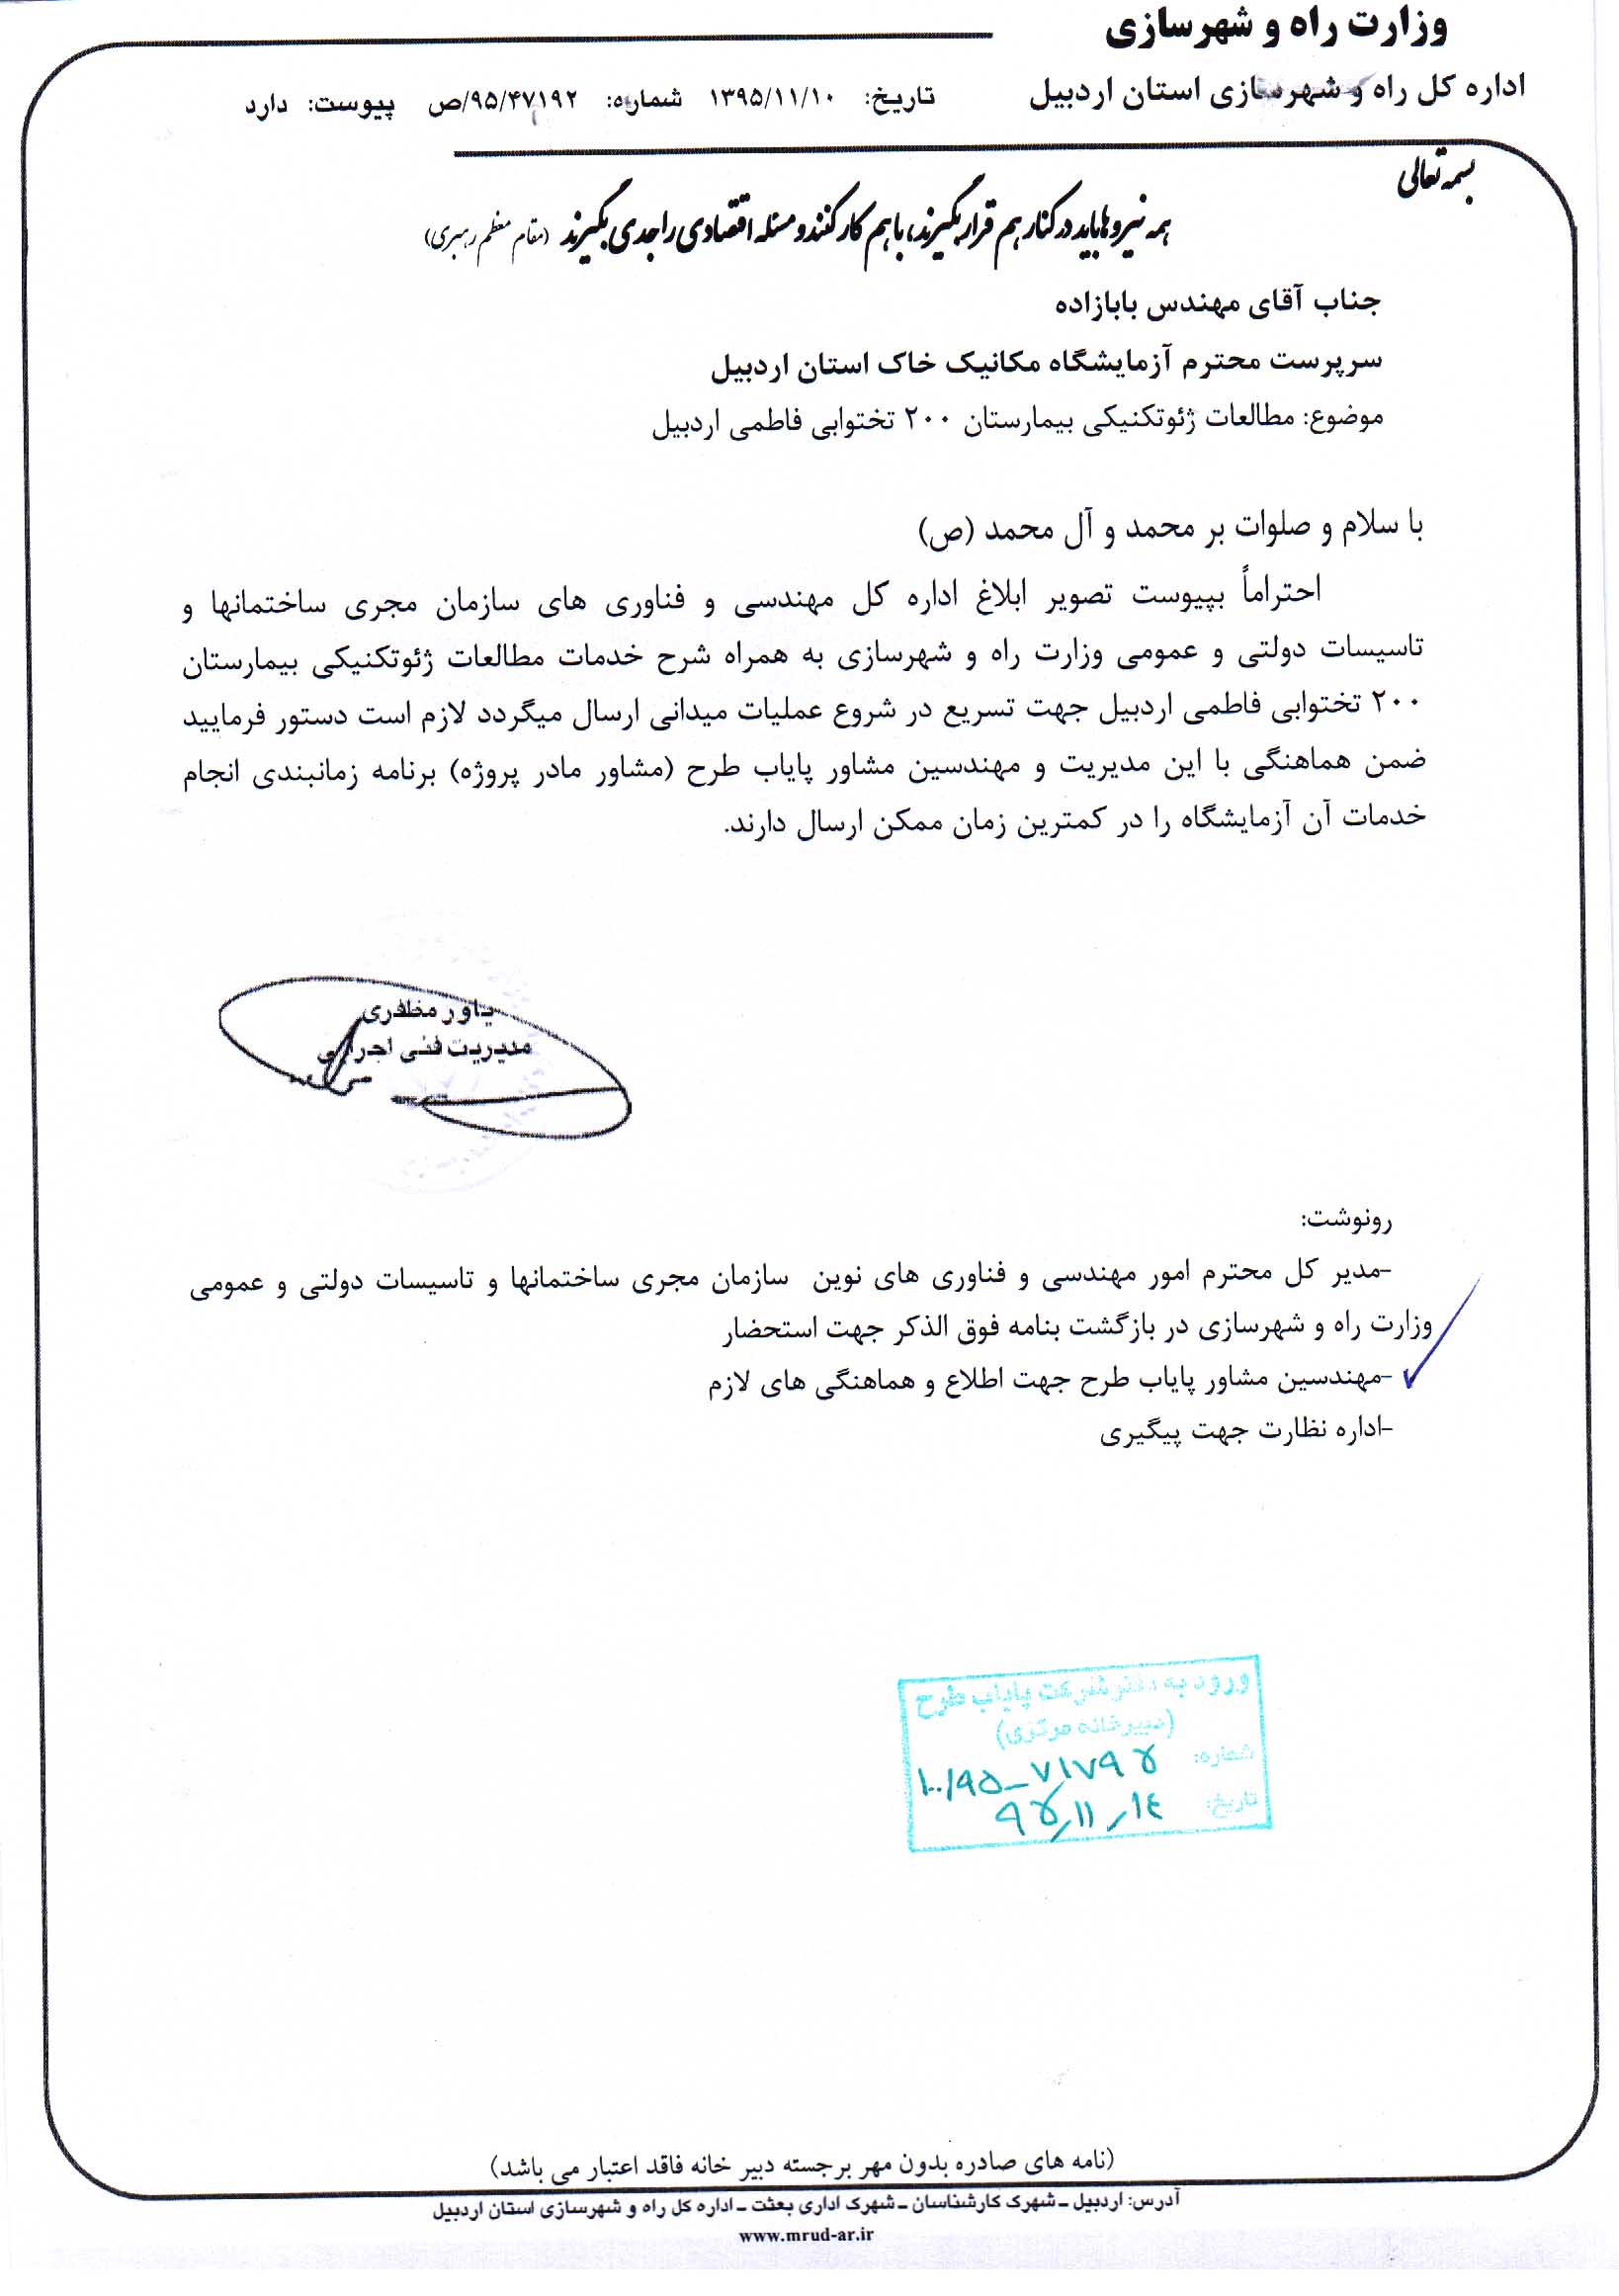 وزارت راه و شهرسازی
اداره کل راه و شهرسازی استان اردبیل
تاریخ: ۱۳۹۵/۱۱/۱۰ شماره: ۹۵/۴۷۱۹۲/ص پیوست: دارد
بسمه تعالی
همه نیروها باید در کنار هم قرار بگیرند، با هم کار کنند و مسئله اقتصادی را جدی بگیرند (مقام معظم رهبری)
جناب آقای مهندس بابازاده
سرپرست محترم آزمایشگاه مکانیک خاک استان اردبیل
موضوع: مطالعات ژئوتکنیکی بیمارستان ۲۰۰ تختوابی فاطمی اردبیل
با سلام و صلوات بر محمد و آل محمد (ص)
احتراماً بپیوست تصویر ابلاغ اداره کل مهندسی و فناوری های سازمان مجری ساختمانها و
تاسیسات دولتی و عمومی وزارت راه و شهرسازی به همراه شرح خدمات مطالعات ژئوتکنیکی بیمارستان
۲۰۰ تختوابی فاطمی اردبیل جهت تسریع در شروع عملیات میدانی ارسال میگردد لازم است دستور فرمایید
ضمن هماهنگی با این مدیریت و مهندسین مشاور پایاب طرح (مشاور مادر پروژه) برنامه زمانبندی انجام
خدمات آن آزمایشگاه را در کمترین زمان ممکن ارسال دارند.
یاور مظفری
مدیریت فنی اجرایی
رونوشت:
-مدیر کل محترم امور مهندسی و فناوری های نوین سازمان مجری ساختمانها و تاسیسات دولتی و عمومی
وزارت راه و شهرسازی در بازگشت بنامه فوق الذکر جهت استحضار
-مهندسین مشاور پایاب طرح جهت اطلاع و هماهنگی های لازم
-اداره نظارت جهت پیگیری
ورود به دفتر شرکت پایاب طرح
(دبیرخانه مرکزی)
شماره: ۱۰۰/۹۵-۷۱۷۹۵
تاریخ: ۹۵/۱۱/۱۴
(نامه های صادره بدون مهر برجسته دبیر خانه فاقد اعتبار می باشد)
آدرس: اردبیل - شهرک کارشناسان - شهرک اداری بعثت - اداره کل راه و شهرسازی استان اردبیل
www.mrud-ar.ir